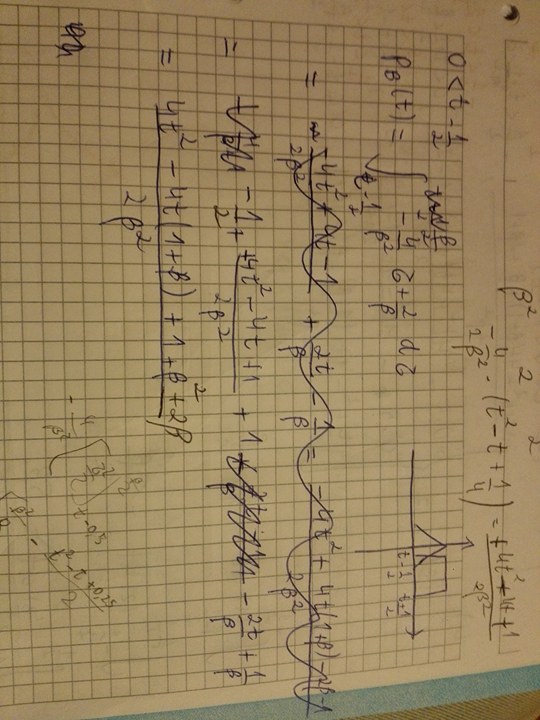 β² 2 2
-4/2β² · (t² - t + 1/4) = +4t² + 4t + 1 / 2β²
0 < t - 1/2
t - 1/2 t + 1/2
p_B(t) = ∫_{t - 1/2}^{β/2} -4/β² τ + 2/β dτ
= -4t² + 4t - 1 / 2β² + 2t/β - 1/β = -4t² + 4t(1+β) - 2β - 1 / 2β²
= -1/2 + +4t² - 4t + 1 / 2β² + 1 - 2t/β + 1/β
= 4t² - 4t(1+β) + 1 + β² + 2β / 2β²
-4/β² [τ²/2]_{t-0,5}^{β/2}
t² - t + 0,25 / 2